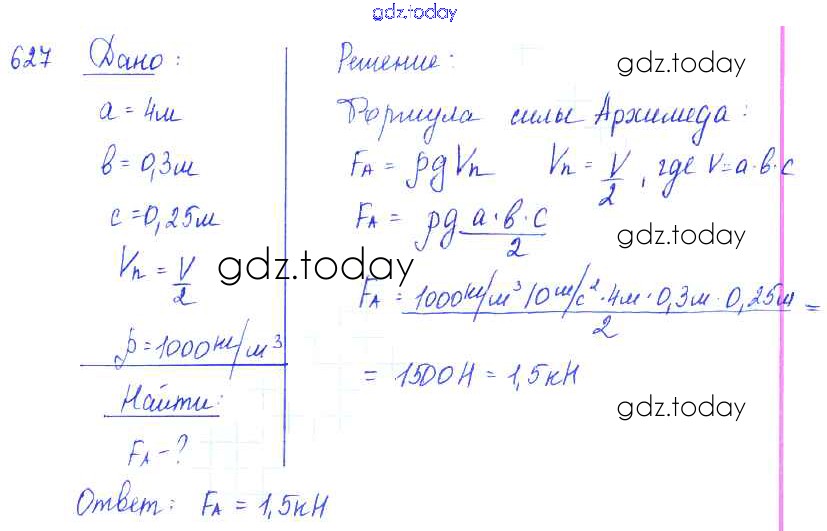 gdz.today
627 Дано:
a = 4м
b = 0,3м
c = 0,25м
Vп = V/2
ρ = 1000 кг/м³
Найти:
FA - ?
Решение:
gdz.today
Формула силы Архимеда:
FA = ρgVп Vп = V/2, где V = a·b·c
FA = ρg a·b·c/2
gdz.today
gdz.today
FA = 1000 кг/м³ 10 м/с² · 4м · 0,3м · 0,25м / 2 =
= 1500Н = 1,5кН
gdz.today
Ответ: FA = 1,5кН